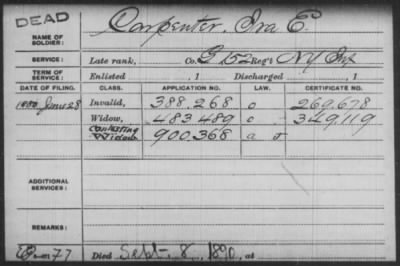 DEAD
NAME OF SOLDIER: Carpenter, Ira E.
SERVICE: Late rank, Co. G 152 Reg't NY Inf
TERM OF SERVICE: Enlisted , 1 Discharged , 1
DATE OF FILING. CLASS. APPLICATION NO. LAW. CERTIFICATE NO.
1880 June 28 Invalid, 388.268 o 269,678
Widow, 483489 o 349,119
Contesting Widow 900.368 a
ADDITIONAL SERVICES:
REMARKS:
Died Sept. 8, 1890, at